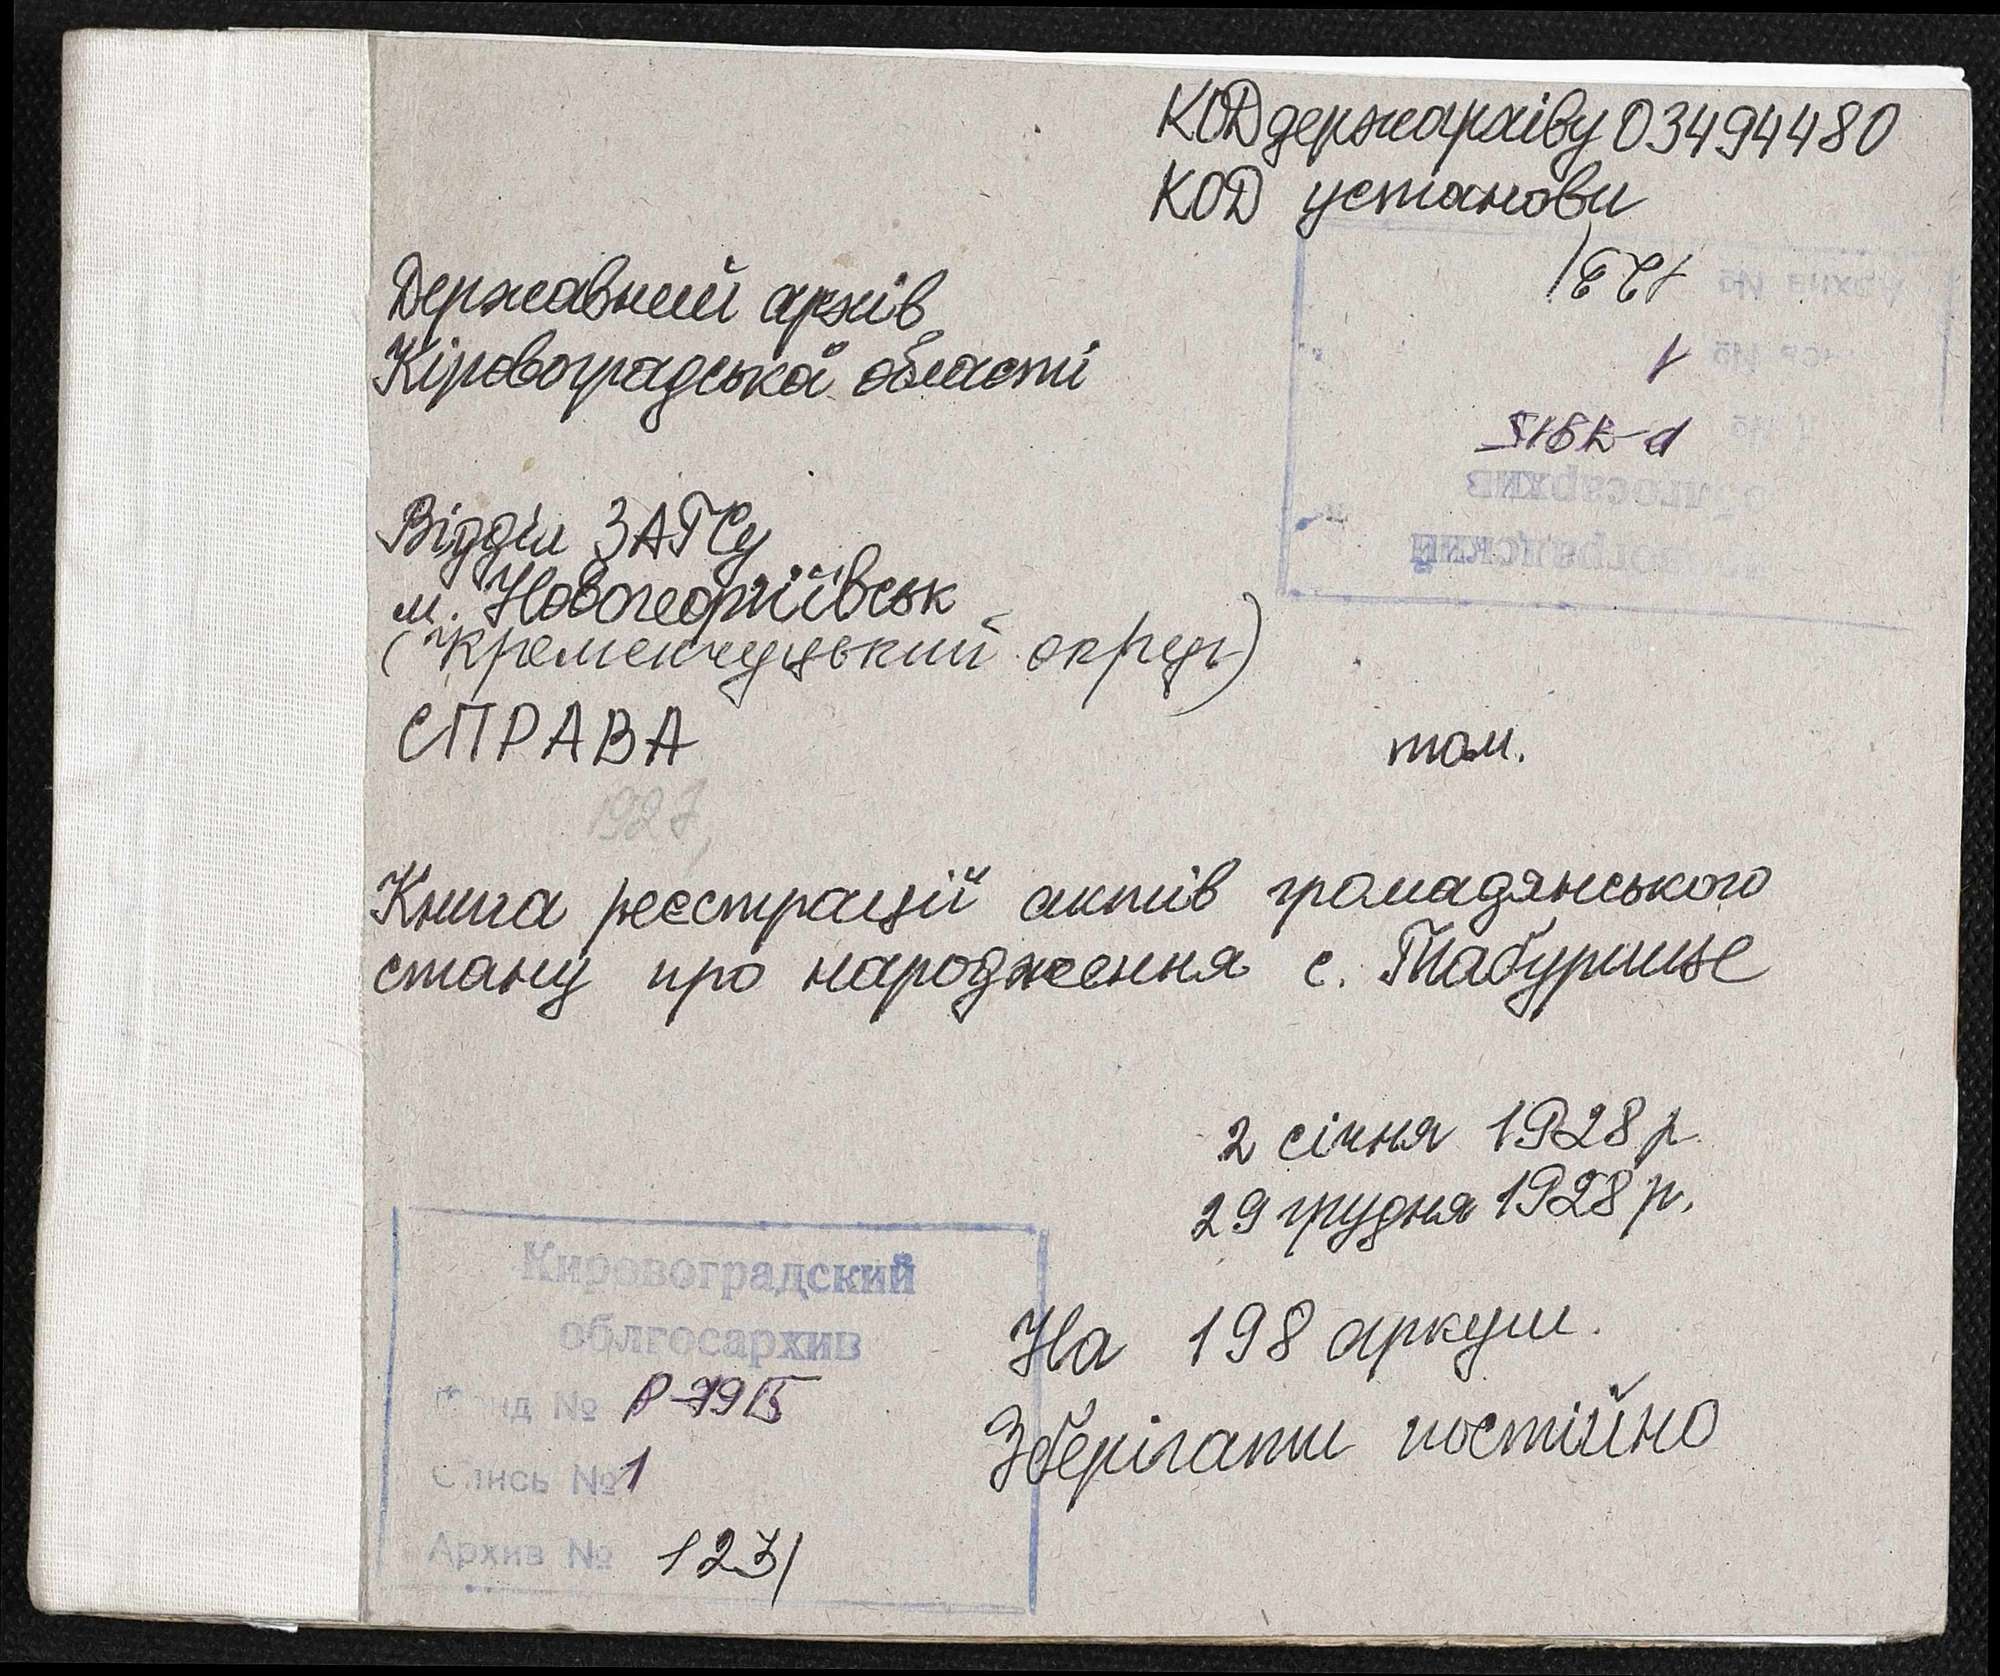 КОД держархіву 03494480
КОД установи
Державний архів
Кіровоградської області
Відділ ЗАГСу
м. Новогеоргіївськ
(Кременчуцький округ)
СПРАВА
том.
1927,
Книга реєстрації актів громадянського
стану про народження с. Табурище
2 січня 1928 р
29 грудня 1928 р.
На 198 аркуш.
Зберігати постійно
Кировоградский
облгосархив
Фонд №
Опись № 1
Архив № 123/